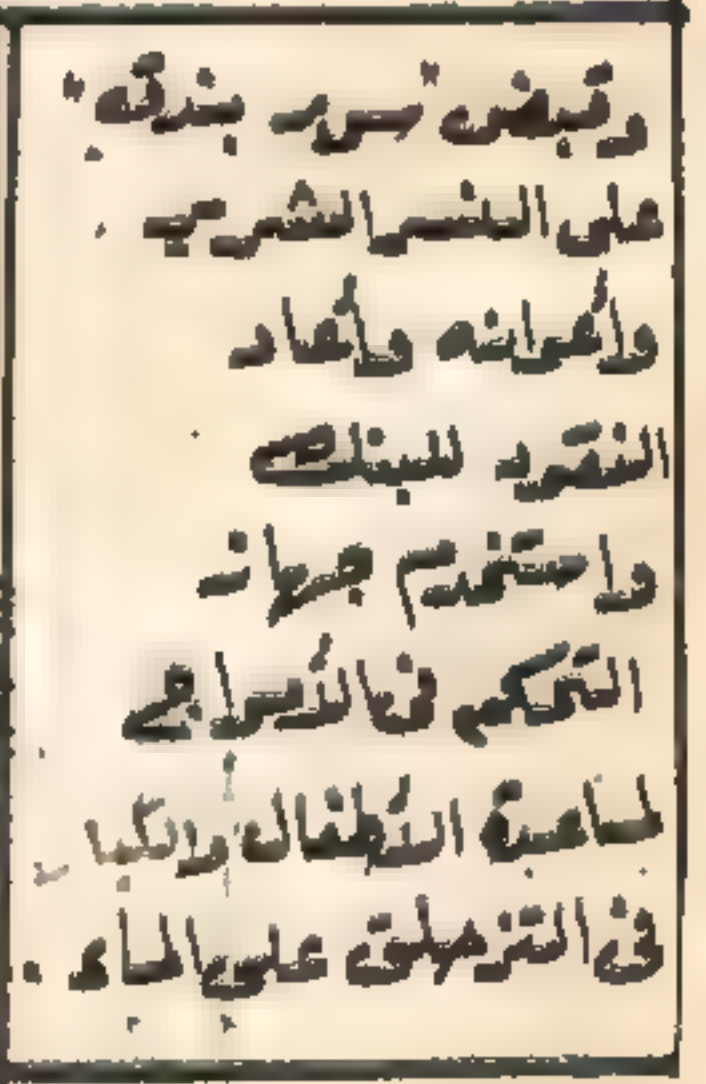 وقبض سوبر بندق
على الشرير
وأعوانه وأعاد
النقود للبنك
واستخدم جهاز
التحكم في الأمواج
لمساعدة الأطفال والكبار
في التزحلق على الماء .